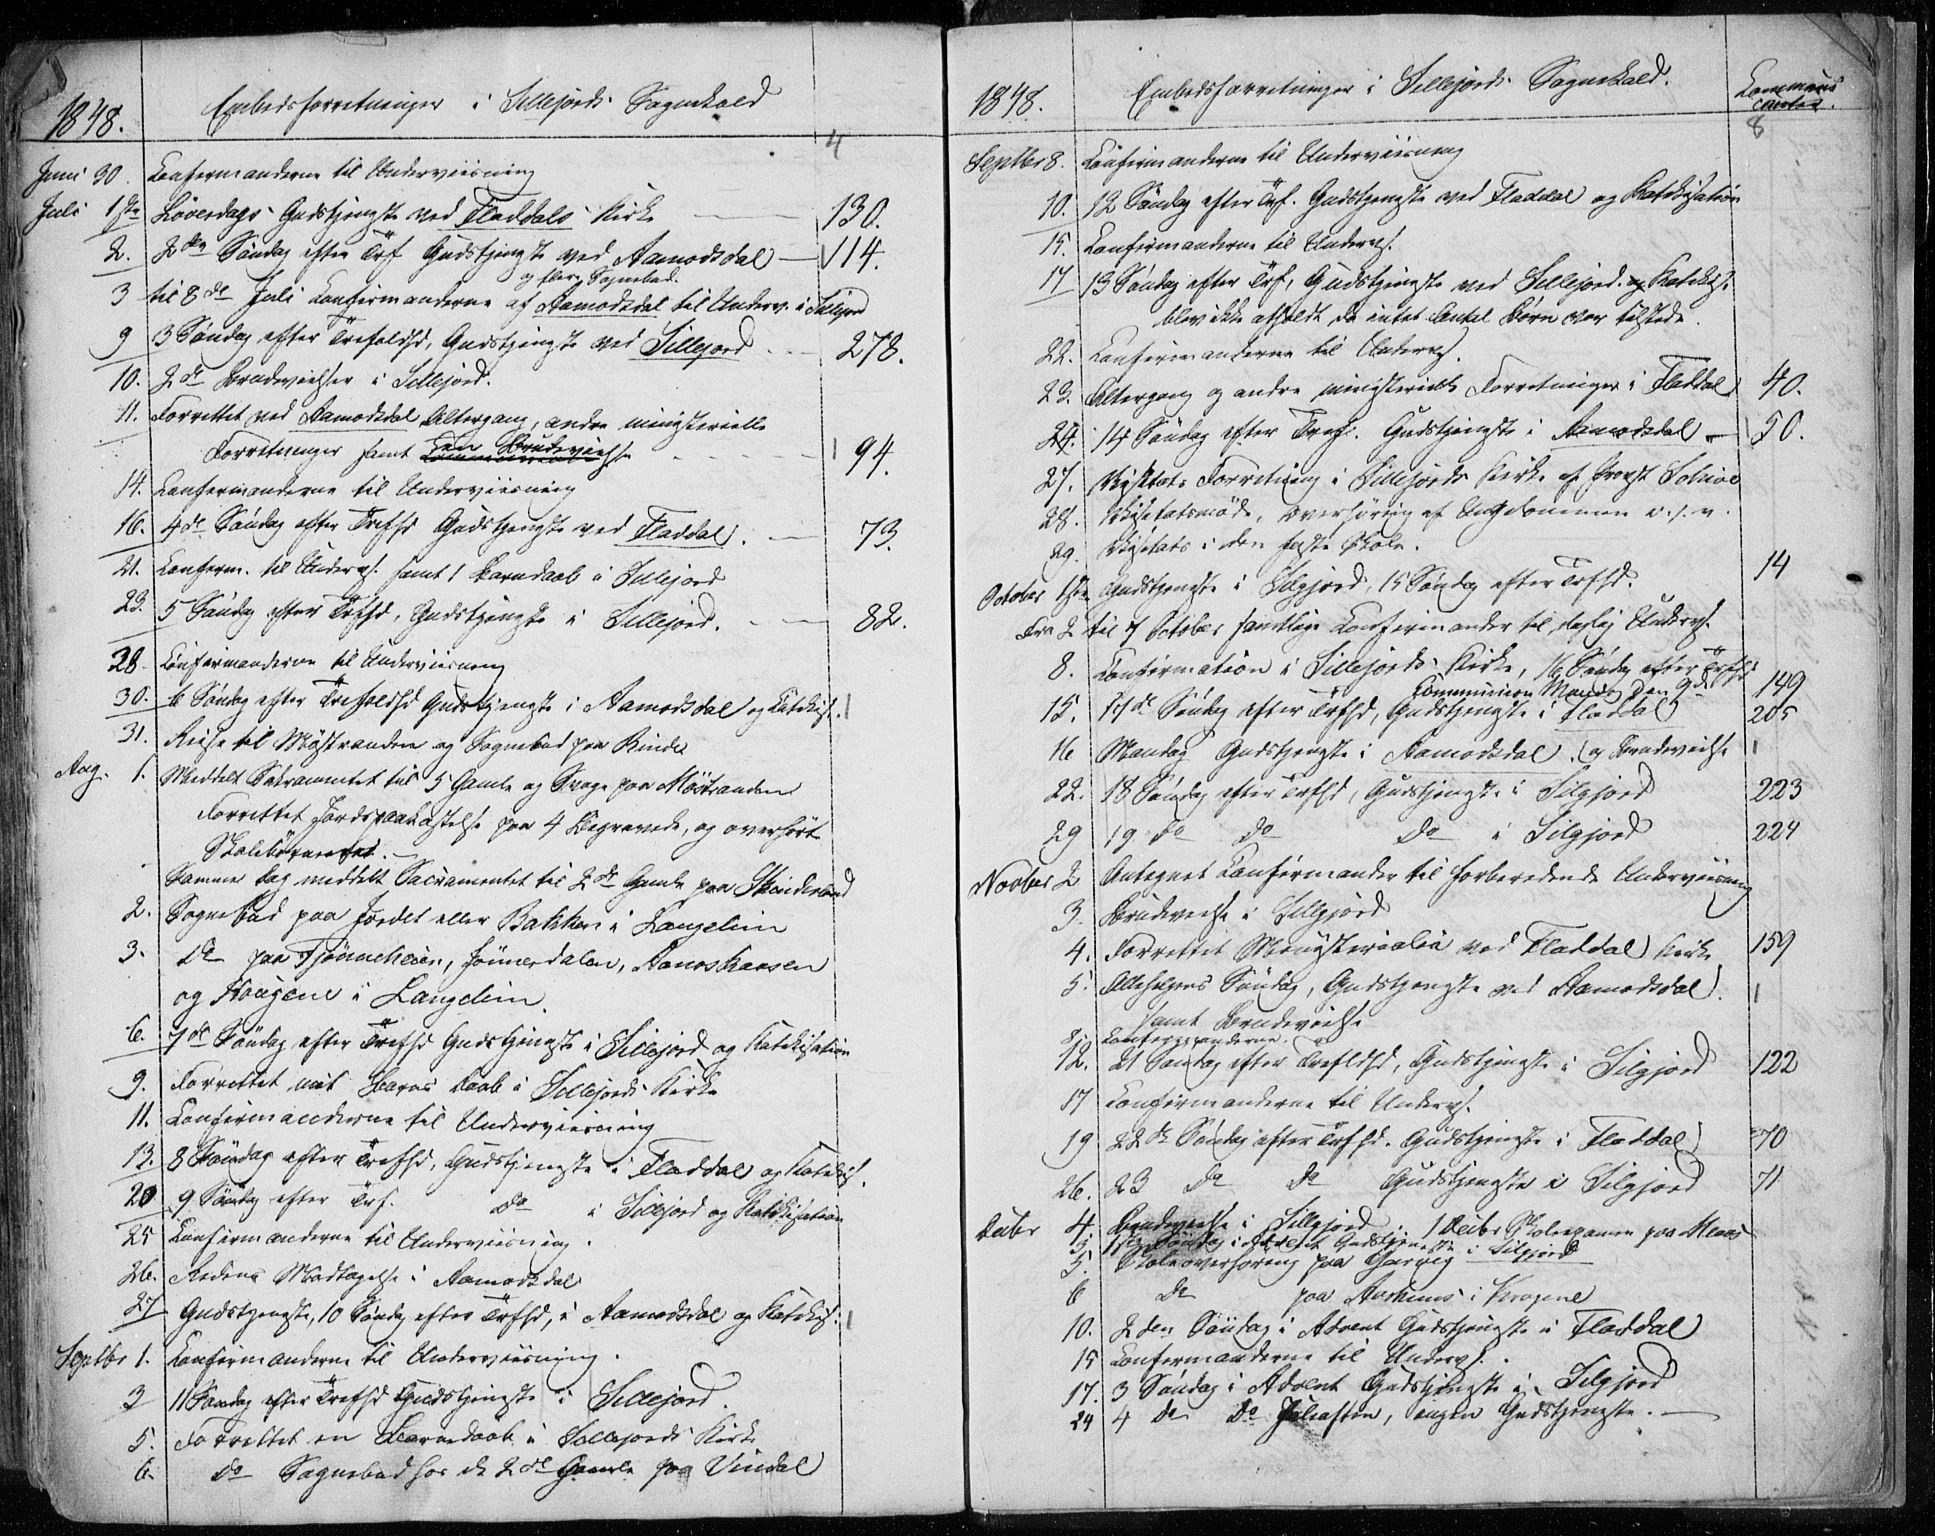 1848. Embedsforretninger i Sillejords Sognekald
4
Juni 30. Confirmanderne til Underviisning
Juli 1ste Löverdags Gudstjeneste ved Fladdals Kirke 130.
2. 2den Søndag efter Trf Gudstjeneste ved Aamodsdal 114.
og flere Sognebud.
3 til 8de Juli Confirmanderne af Aamodsdal til Underv. i Sillejord
9 3 Søndag efter Trefoldhd, Gudstjeneste ved Sillejord 278.
10. 2de Brudevielser i Sillejord.
11. Forrettet ved Aamodsdal Altergang, andre ministerielle
Forretninger samt Brudevielse 94.
14. Confirmanderne til Underviisning
16. 4de Søndag efter Trefhd Gudstjeneste ved Fladdal. 73.
21. Confirm. til Underv. samt 1 Barnedaab i Sillejord
23. 5 Søndag efter Trfhd, Gudstjeneste i Sillejord. 82.
28. Confirmanderne til Underviisning
30. 6 Søndag efter Trefoldhd Gudstjeneste i Aamodsdal og Catekis.
31. Reise til Möstranden og Sognebud paa Rinde
Aug. 1. Meddelt Sakramentet til 5 Gamle og Svage paa Möstranden
Forrettet Jordspaakastelse paa 4 Begravede, og overhørt
Skolebørnene.
Samme Dag meddelt Sacramentet til 2de Gamle paa
2. Sognebud paa Jordet eller Bakken i Langelim
3. Do paa Tjønneheien, Aamoskaasen
og Haugene i Langelim
6. 7de Søndag efter Trefhd Gudstjeneste i Sillejord og Katekisation
9. Forrettet Barne Daab i Sillejords Kirke
11. Confirmanderne til Underviisning
13. 8 Søndag efter Trefhd, Gudstjeneste i Fladdal og Katekis.
20 9 Søndag efter Trf. Do i Sillejord og Katekisation
25 Confirmanderne til Underviisning.
26. Modtagelse i Aamodsdal
27 Gudstjeneste, 10 Søndag efter Trfhd, i Aamodsdal og Katekis.
Septbr 1. Confirmanderne til Underviisning.
3 11 Søndag efter Trefhd Gudstjeneste i Sillejord.
5. Forrettet en Barnedaab i Sillejords Kirke
6. Do Sognebud hos de 2de Gamle paa Vindal
1848. Embedsforretninger i Sillejords Sognekald. Communicantes.
8
Septbr 8. Confirmanderne til Underviisning
10. 12 Søndag efter Trf. Gudstjeneste ved Fladdal og Katekisation
15. Confirmanderne til Underv.
17 13 Søndag efter Trf, Gudstjeneste ved Sillejord. Katekis.
blev ikke afholdt, da intet Antal Børn var tilstede.
22. Confirmanderne til Underv.
23. Altergang og andre ministerielle Forretninger i Fladdal 40.
24. 14 Søndag efter Tref. Gudstjeneste i Aamodsdal 50.
27. Visitats Forretning i Sillejords Kirke af Provst
28. Visitatsmöde, Overhöring af Ungdommen o.s.v.
29. Visitats i den faste Skole.
October 1ste Gudstjeneste i Silgjord, 15 Søndag efter Trfhd. 14
Fra 2 til 7 October samtlige Confirmander til daglig Underv.
8. Confirmation i Sillejords Kirke, 16 Søndag efter Trfhd
Communion Mandag den 9de 149
15. 17de Søndag efter Trfhd, Gudstjeneste i Fladdal 205
16 Mandag Gudstjeneste i Aamodsdal. og Brudevielse
22. 18 Søndag efter Trfhd, Gudstjeneste i Silgjord 223
29 19 do do do i Silgjord 224
Novber 2 Antegnet Confirmander til forberedende Underviisning
3. Brudevielse i Sillgjord
4. Forrettet Ministerialia ved Fladdal Kirke 159
5. Allehelgens Søndag, Gudstjeneste ved Aamodsdal.
samt Brudevielse
Confirmanderne.
12. 21 Søndag efter Trefldhd, Gudstjeneste i Silgjord 122
17 Confirmanderne til Underv.
19 22de Søndag efter Trfhd. Gudstjeneste i Fladdal 70
26. 23 do do Gudstjeneste i Silgjord 71
Decbr 4. Brudevielse i Sillejord. 1 Decbr paa
3. 1ste Søndag i Advent Gudstjeneste i Silgjord
5. Skoleoverhøring paa
6 do paa i
10. 2den Søndag i Advent Gudstjeneste i Fladdal
15 Confirmanderne til Underv.
17. 3 Søndag i Advent Gudstjeneste i Silgjord
24 4 do do Juleaften, ingen Gudstjeneste.